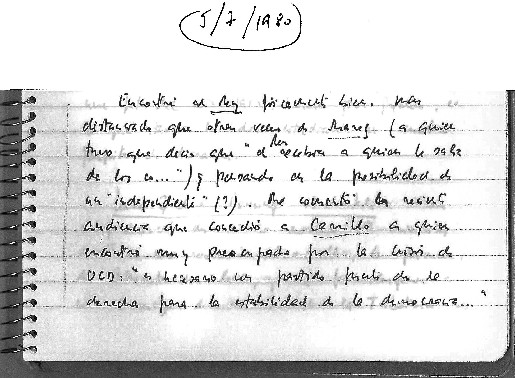 (5/7/1980)
Encontré al Rey físicamente bien. más
distanciado que otras veces de Suárez (a quien
tuvo que decir que "el Rey recibía a quien le salía
de los co...") y pensando en la posibilidad de
un "independiente" (?). Me comentó la reciente
audiencia que concedió a Carrillo a quien
encontró muy preocupado por la crisis de
UCD: "es necesario un partido fuerte de la
derecha para la estabilidad de la democracia..."